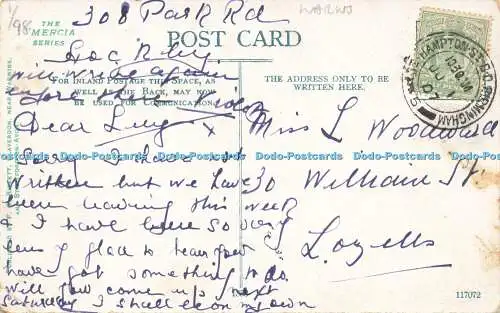 1/98
WARWS
308 Park Rd
THE
MERCIA
SERIES
POST CARD
will write again
FOR INLAND POSTAGE THIS SPACE, AS
WELL AS THE BACK, MAY NOW
BE USED FOR COMMUNICATION.
THE ADDRESS ONLY TO BE
WRITTEN HERE.
Dear Lucy
Sorry I have not
written but we have
been leaving this week
& I have been so very
glad to hear you
have got something to do
will you come up next
Saturday I shall be on my own
Miss L Woodward
30 William St
Lozells
117072
HAMPTON ST. B.O.
BIRMINGHAM
Dodo-Postcards Dodo-Postcards Dodo-Postcards Dodo-Postcards